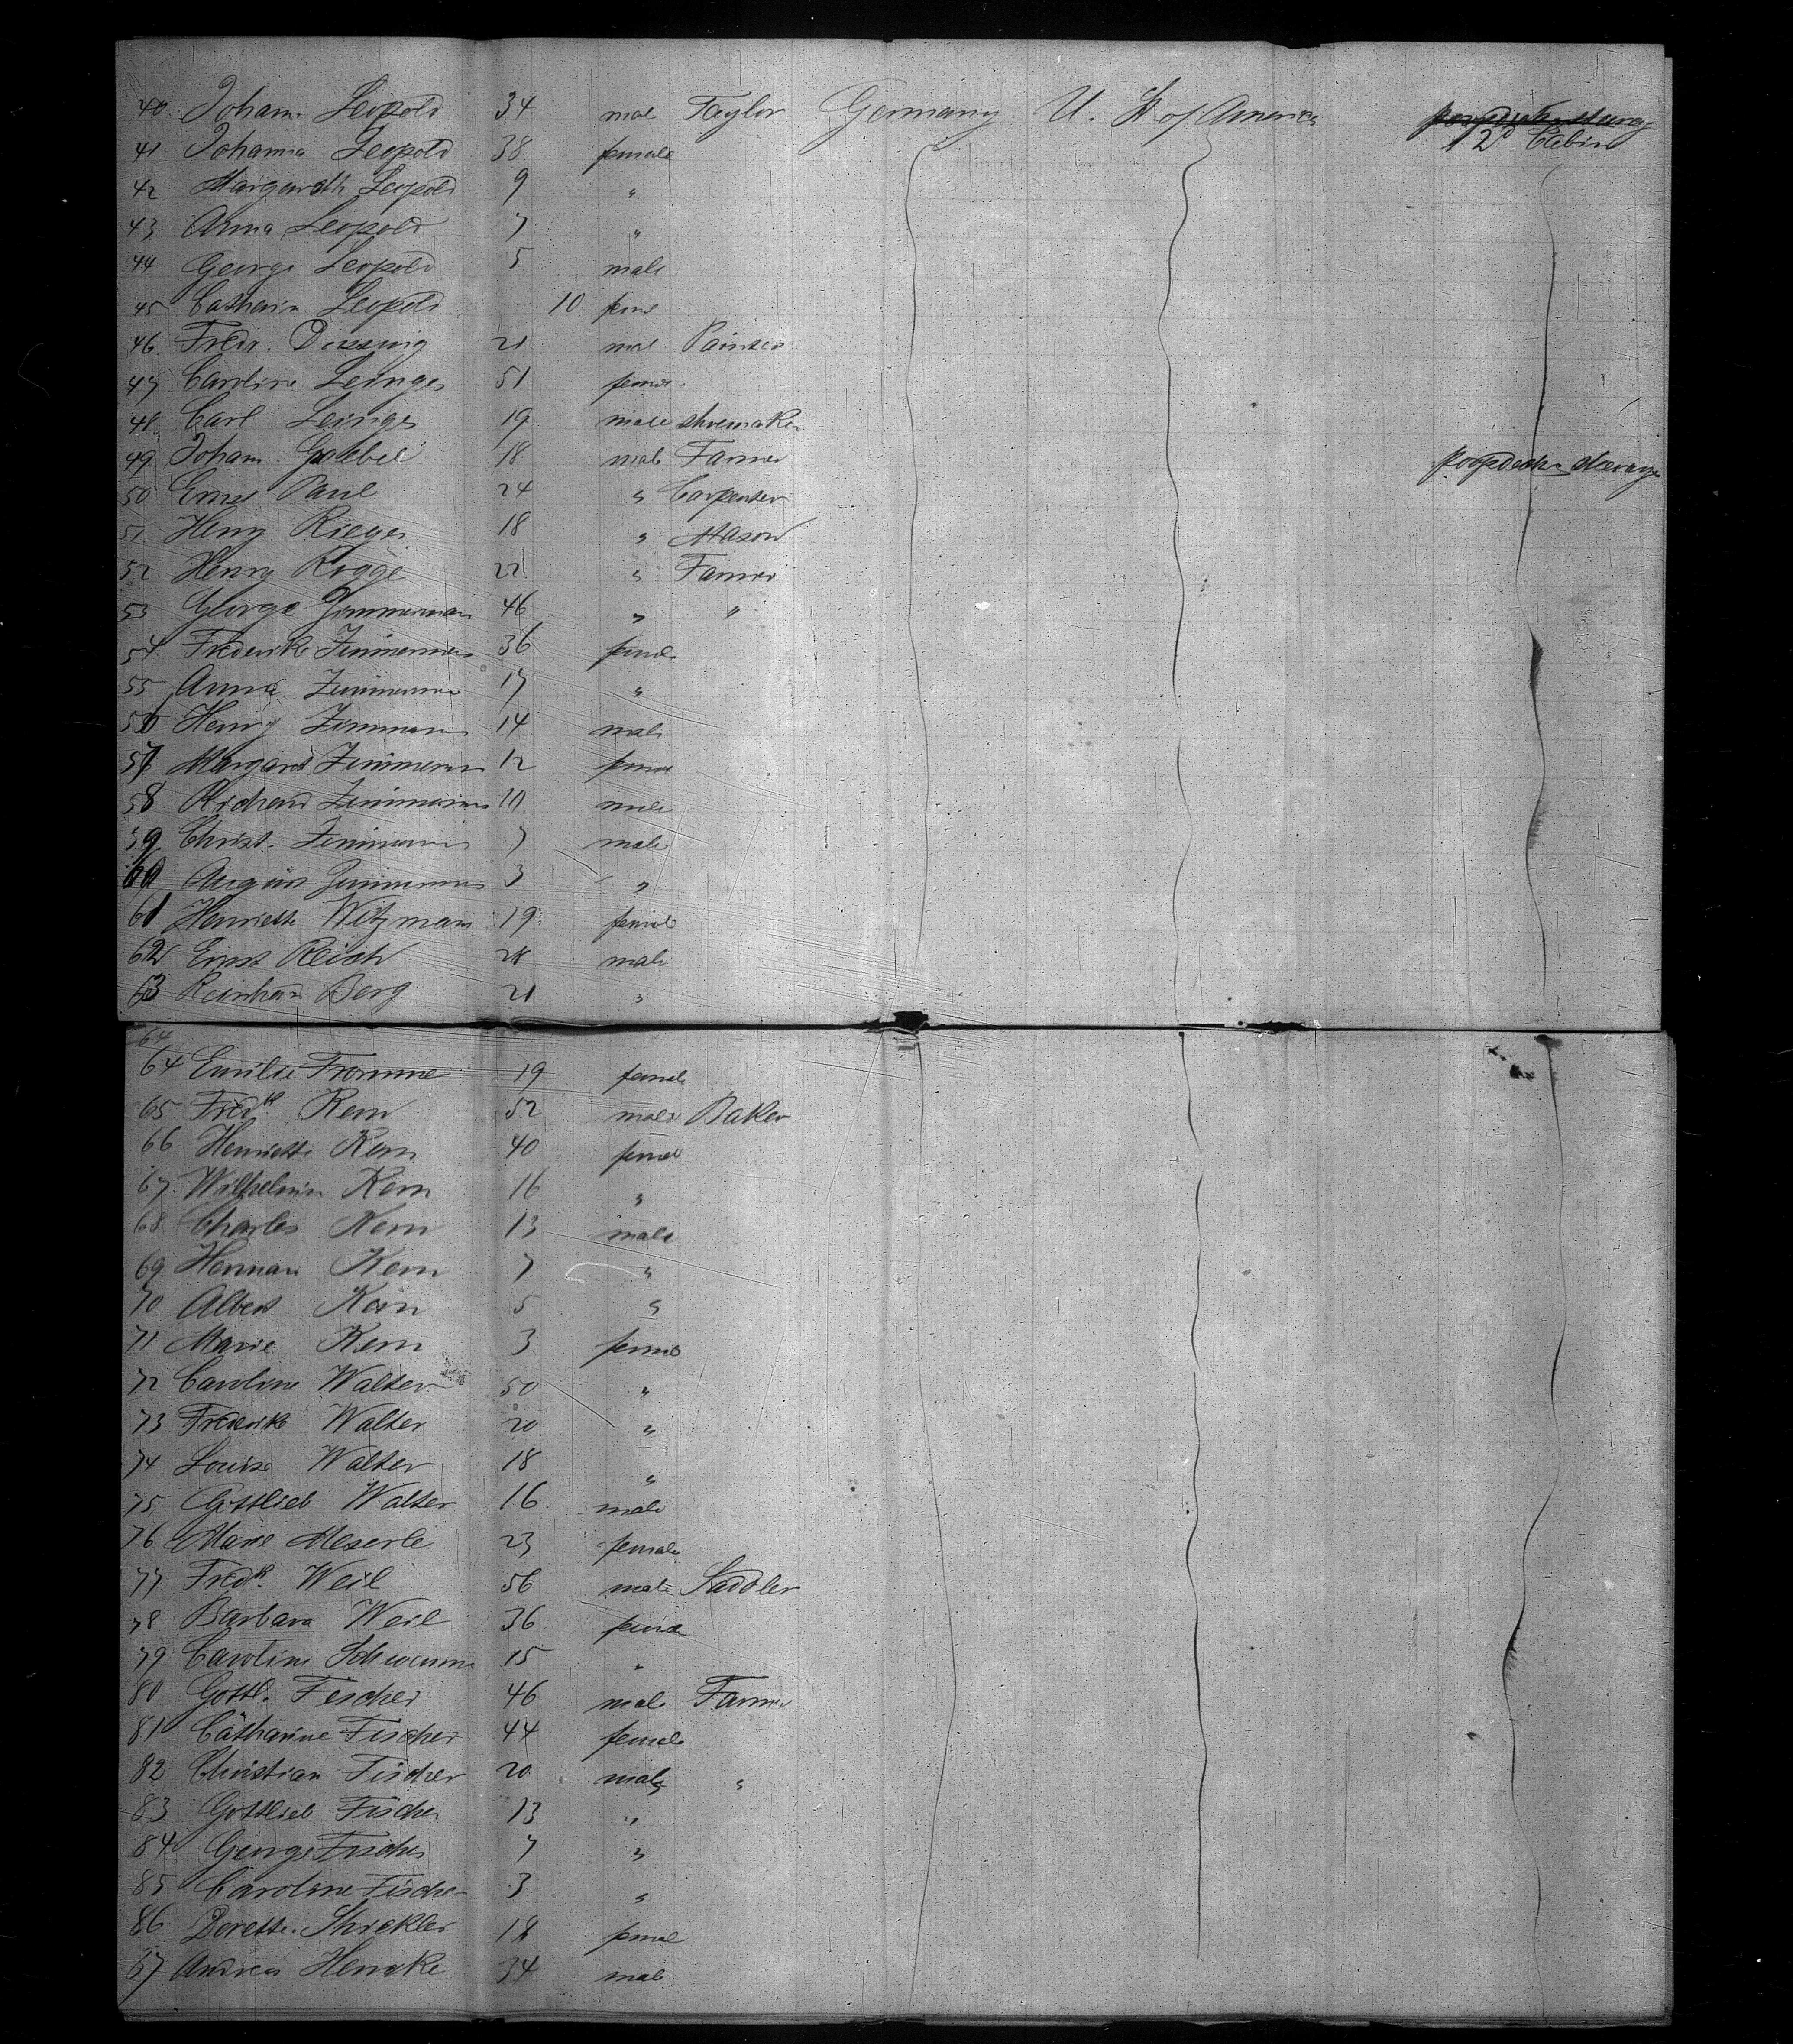 40 Joham Leopold 34 mal Taylor Germany U. St of America poopdeck steerage
2d Cabin
41 Johanna Leopold 38 female
42 Margareth Leopold 9 "
43 Anna Leopold 7 "
44 George Leopold 5 male
45 Catharin Leopold 10 fem
46 Fredr. 21 mal Painter
47 Caroline Leinger 51 female
48 Carl Leinger 19 male shoemaker
49 Joham 18 male Farmer poopdeck steerage
50 Ernst Paul 24 " Carpenter
51 Henry Rieger 18 " Mason
52 Henry Rogge 22 " Farmer
53 George Zimmerman 46 " "
54 Frederike Zimmerman 36 female
55 Anna Zimmerman 17 "
56 Henry Zimmerman 14 male
57 Margaret Zimmerman 12 female
58 Richard Zimmerman 10 male
59 Christ. Zimmerman 7 male
60 August Zimmerman 3 "
61 Henriette Witzman 19 female
62 Ernst Reich male
63 Reinhard Berg 21 "
64
64 Emilie Fromme 19 female
65 Fredk Kern 52 male Baker
66 Henriette Kern 40 female
67 Wilhelmin Kern 16 "
68 Charles Kern 13 male
69 Herman Kern 7 "
70 Albert Kern 5 "
71 Marie Kern 3 female
72 Caroline Walter 50 "
73 Frederike Walter 20 "
74 Louise Walter 18 "
75 Gottlieb Walter 16 male
76 Marie Meserle 23 female
77 Fredk. Weil 56 male Saddler
78 Barbara Weil 36 female
79 Caroline 15 "
80 Gottl. Fischer 46 male Farmer
81 Catharine Fischer 44 female
82 Christian Fischer 20 male "
83 Gottlieb Fischer 13 "
84 George Fischer 7 "
85 Caroline Fischer 3 "
86 Dorette 18 female
87 Andreas Hemke 34 male